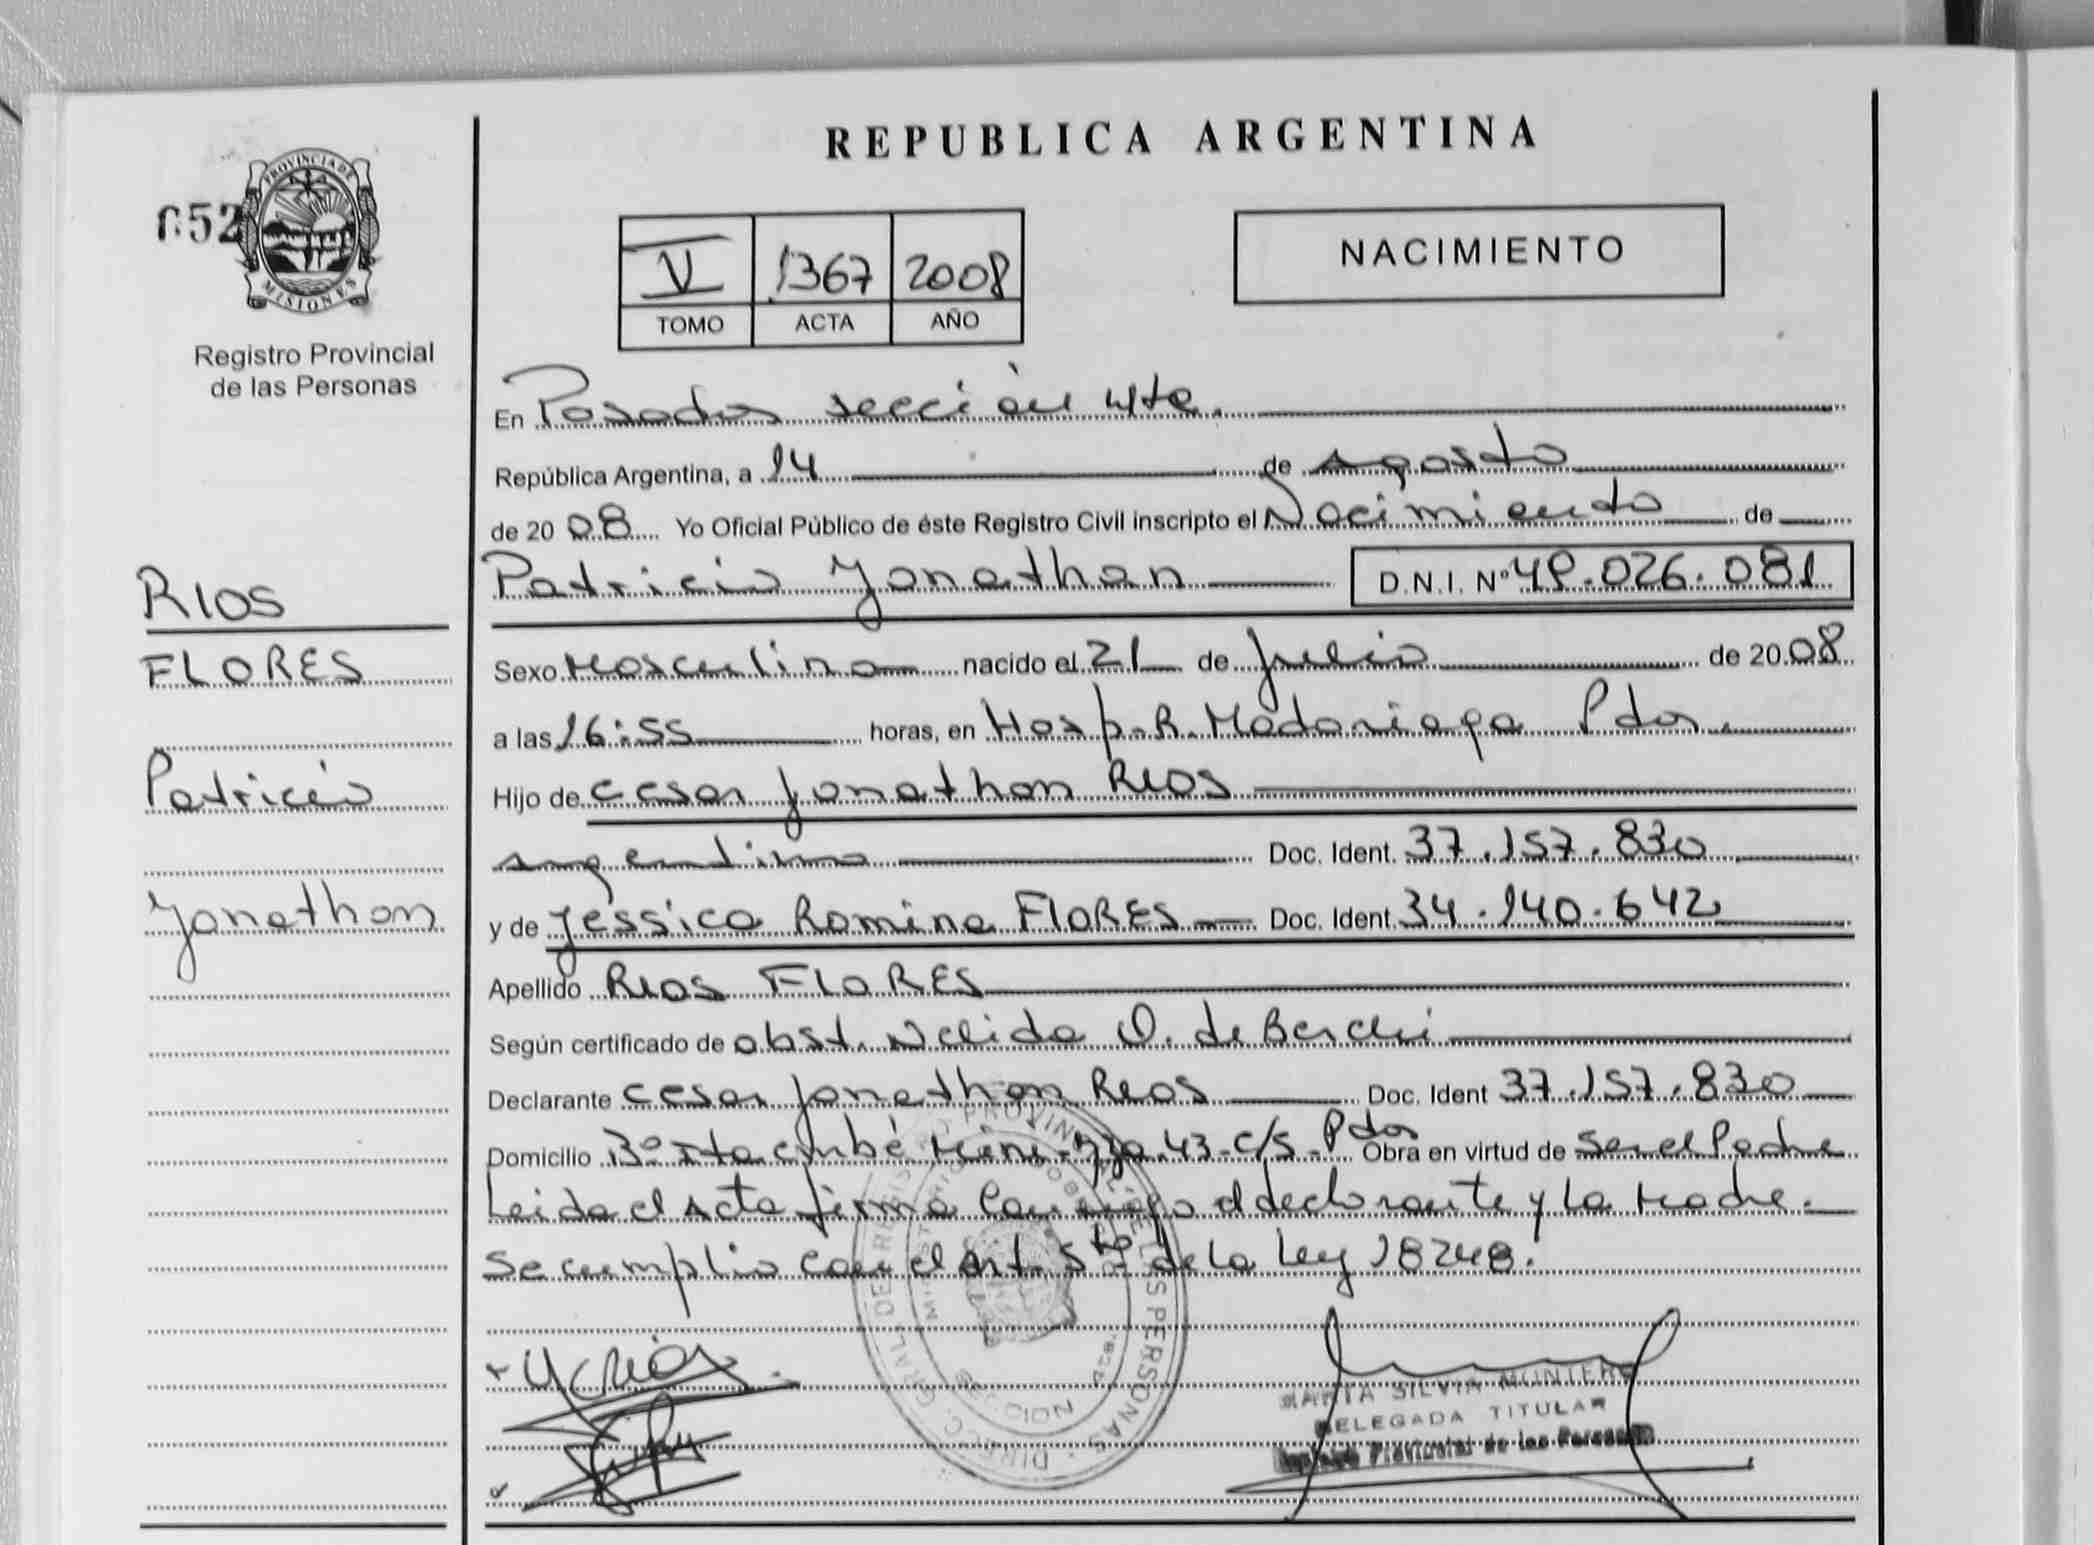 REPUBLICA ARGENTINA
PROVINCIA DE
MISIONES
652
Registro Provincial
de las Personas
V 1367 2008
TOMO ACTA AÑO
NACIMIENTO
En Posadas sección 4ta.
República Argentina, a 14 de Agosto
de 20 08 Yo Oficial Público de éste Registro Civil inscripto el Nacimiento de
Patricio Jonathan D.N.I. Nº 49.026.081
RIOS
FLORES
Patricio
Jonathan
Sexo Masculino nacido el 21 de Julio de 20 08
a las 16:55 horas, en Hosp. R. Madariaga Pdas.
Hijo de Cesar Jonathan RIOS
argentino Doc. Ident. 37.157.830
y de Jessica Romina FLORES Doc. Ident. 34.140.642
Apellido RIOS FLORES
Según certificado de obst. Nelida O. de
Declarante Cesar Jonathan Rios Doc. Ident 37.157.830
Domicilio Bº Itaembé Mini - Mza. 43 - C/5 - Pdas Obra en virtud de ser el Padre
Leida el Acta firma conmigo el declarante y la Madre.
Se cumplio con el Art. 5to de la Ley 18248.
DIRECC. GRAL. DE REGISTRO PROVINCIAL DE LAS PERSONAS
MARTA SILVIA MONTERO
DELEGADA TITULAR
Registro Provincial de las Personas